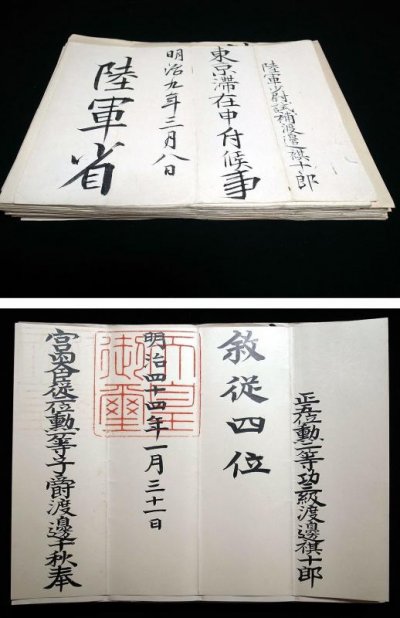 陸軍少尉試補渡邊祺十郎
東京滞在申付候事
明治九年三月八日
陸軍省
正五位勲二等功三級渡邊祺十郎
敘從四位
明治四十四年一月三十一日
天皇御璽
宮内大臣從二位勲一等子爵渡邊千秋奉